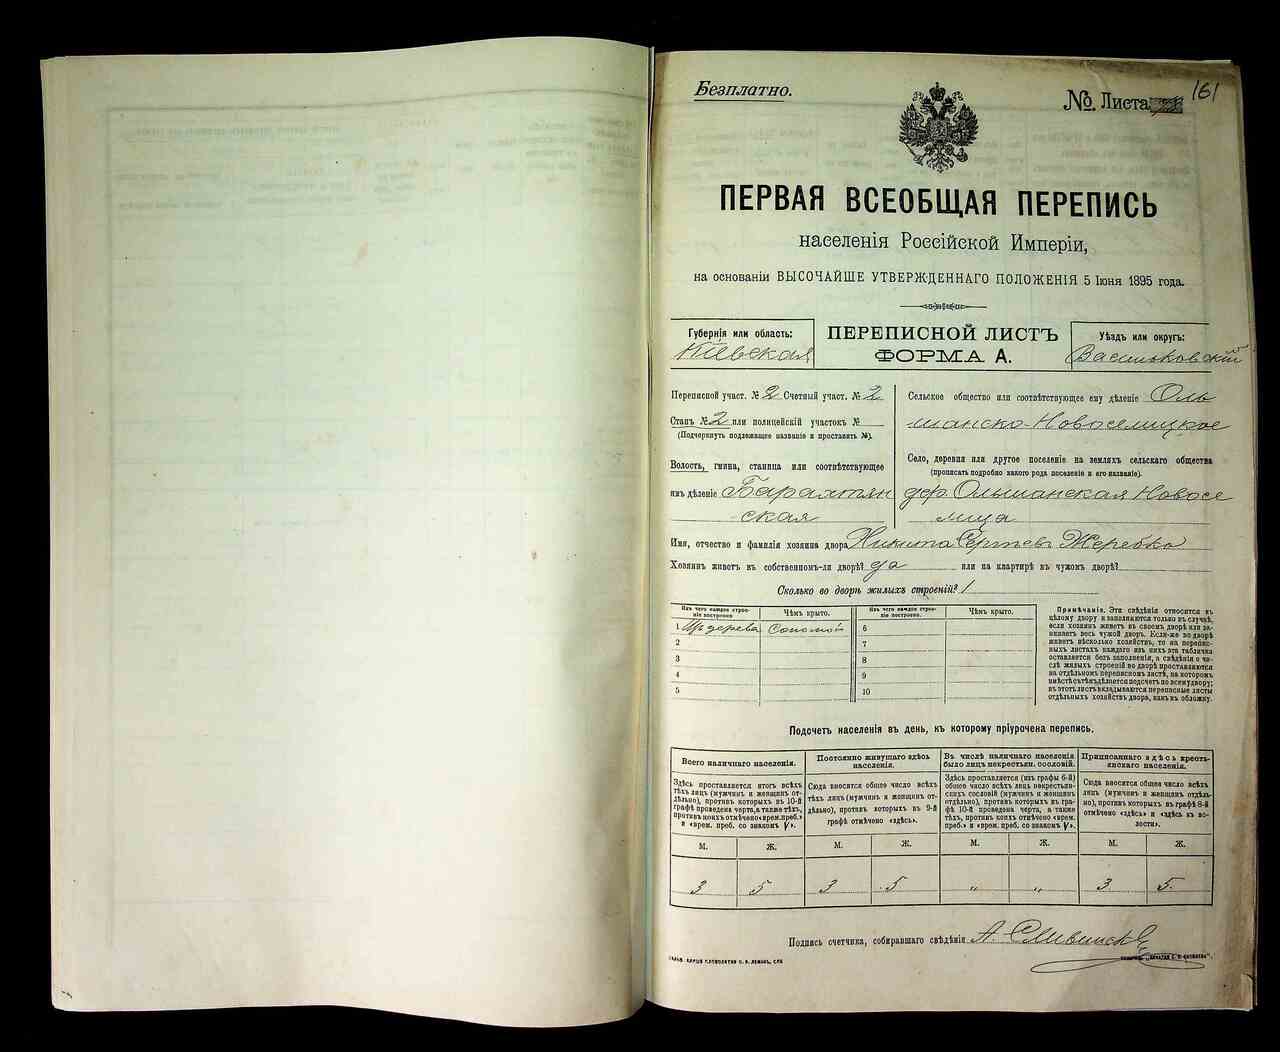 Безплатно.
№ Листа 161
ПЕРВАЯ ВСЕОБЩАЯ ПЕРЕПИСЬ
населенія Россійской Имперіи,
на основаніи ВЫСОЧАЙШЕ УТВЕРЖДЕННАГО ПОЛОЖЕНІЯ 5 Іюня 1895 года.
Губернія или область:
Кіевская
ПЕРЕПИСНОЙ ЛИСТЪ
ФОРМА А.
Уѣздъ или округъ:
Васильковскій
Переписной участ. № 2 Счетный участ. № 2
Станъ № 2 или полицейскій участокъ №
(Подчеркнуть подлежащее названіе и проставить №).
Волость, гмина, станица или соотвѣтствующее
имъ дѣленіе Барахтян
ская
Сельское общество или соотвѣтствующее ему дѣленіе Оль
шанско-Новоселицкое
Село, деревня или другое поселеніе на земляхъ сельскаго общества
(прописать подробно какого рода поселеніе и его названіе).
дер. Ольшанская Новосе
лица
Имя, отчество и фамилія хозяина двора Никита Сергѣевъ Жеребко
Хозяинъ живетъ въ собственномъ-ли дворѣ? да или на квартирѣ въ чужомъ дворѣ?
Сколько во дворѣ жилыхъ строеній? 1
Изъ чего каждое строеніе построено. Чѣмъ крыто. Изъ чего каждое строеніе построено. Чѣмъ крыто.
1 Изъ дерева Соломой 6
2 7
3 8
4 9
5 10
Примѣчаніе. Эти свѣдѣнія относятся къ
цѣлому двору и заполняются только въ случаѣ,
если хозяинъ живетъ въ своемъ дворѣ или за-
нимаетъ весь чужой дворъ. Если-же во дворѣ
живетъ нѣсколько хозяйствъ, то на перепис-
ныхъ листахъ каждаго изъ нихъ эта табличка
оставляется безъ заполненія, а свѣдѣнія о чи-
слѣ жилыхъ строеній во дворѣ проставляются
на отдѣльномъ переписномъ листѣ, на которомъ
вмѣстѣ съ тѣмъ дѣлается подсчетъ по всему двору;
въ этотъ листъ вкладываются переписные листы
отдѣльныхъ хозяйствъ двора, какъ въ обложку.
Подсчетъ населенія въ день, къ которому пріурочена перепись.
Всего наличнаго населенія.
Здѣсь проставляется итогъ всѣхъ
тѣхъ лицъ (мужчинъ и женщинъ от-
дѣльно), противъ которыхъ въ 10-й
графѣ проведена черта, а также тѣхъ,
противъ коихъ отмѣчено «врем. преб.»
и «врем. преб. со знакомъ V».
Постоянно живущаго здѣсь
населенія.
Сюда вносится общее число всѣхъ
тѣхъ лицъ (мужчинъ и женщинъ от-
дѣльно), противъ которыхъ въ 9-й
графѣ отмѣчено «здѣсь».
Въ числѣ наличнаго населенія
было лицъ некрестьян. сословій.
Здѣсь проставляется (изъ графы 6-й)
общее число всѣхъ лицъ некрестьян-
скихъ сословій (мужчинъ и женщинъ
отдѣльно), противъ которыхъ въ гра-
фѣ 10-й проведена черта, а также
тѣхъ, противъ коихъ отмѣчено «врем.
преб.» и «врем. преб. со знакомъ V».
Приписаннаго здѣсь кресть-
янскаго населенія.
Сюда вносится общее число всѣхъ
лицъ (мужчинъ и женщинъ отдѣль-
но), противъ которыхъ въ графѣ 8-й
отмѣчено «здѣсь» и «здѣсь въ во-
лости».
М. Ж. М. Ж. М. Ж. М. Ж.
3 5 3 5 „ „ 3 5
Подпись счетчика, собиравшаго свѣдѣнія А. Сливинск